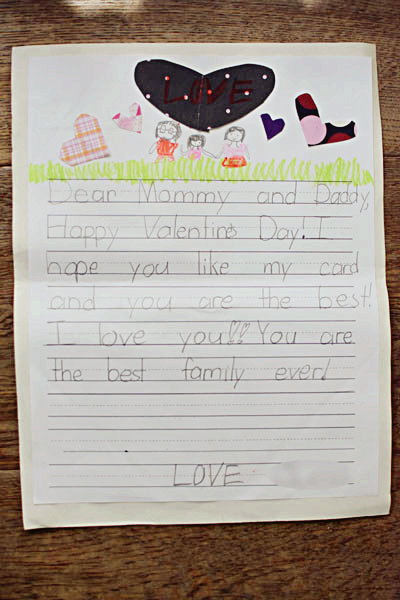 LOVE
Dear Mommy and Daddy,
Happy Valentin's Day! I
hope you like my card
and you are the best!
I love you!! You are
the best family ever!
LOVE